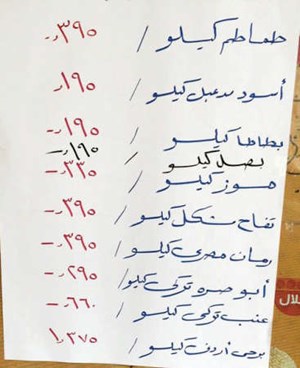 طماطم كيلو / ٣٩٠,-
أسود مدعبل كيلو / ١٩٠,-
بطاطا كيلو / ١٩٠,-
بصل كيلو / ١٩٠,-
موز كيلو / ٣٣٠,-
تفاح شكل كيلو / ٣٩٠,-
رمان مصري كيلو / ٣٩٠,-
أبو صره تركي كيلو / ٢٩٠,-
عنب تركي كيلو / ٦٦٠,-
برحي أردن كيلو / ١,٣٧٥